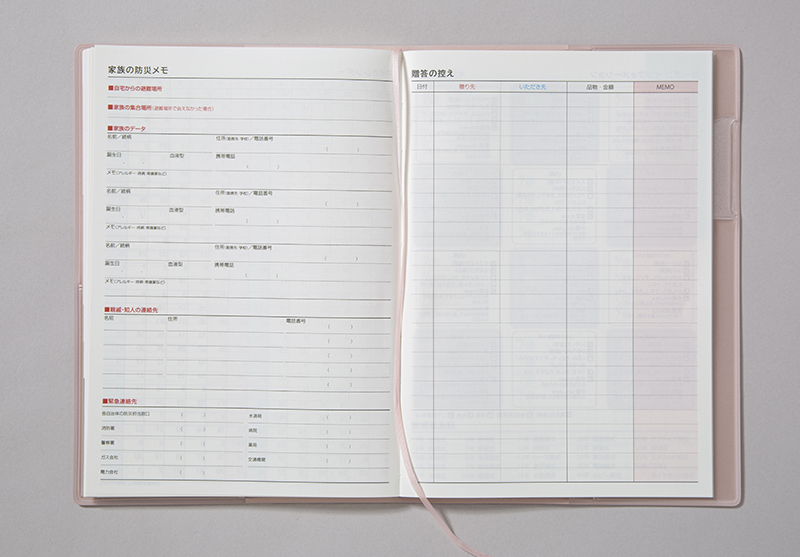 家族の防災メモ
■自宅からの避難場所
■家族の集合場所(避難場所で会えなかった場合)
■家族のデータ
名前／続柄 住所(勤務先・学校)／電話番号
( )
誕生日 血液型 携帯電話
( )
メモ(アレルギー・持病・常備薬など)
名前／続柄 住所(勤務先・学校)／電話番号
( )
誕生日 血液型 携帯電話
( )
メモ(アレルギー・持病・常備薬など)
名前／続柄 住所(勤務先・学校)／電話番号
( )
誕生日 血液型 携帯電話
( )
メモ(アレルギー・持病・常備薬など)
■親戚・知人の連絡先
名前 住所 電話番号
( )
( )
( )
( )
( )
■緊急連絡先
各自治体の防災担当窓口 ( ) 水道局 ( )
消防署 ( ) 病院 ( )
警察署 ( ) 薬局 ( )
ガス会社 ( ) 交通機関 ( )
電力会社 ( )
贈答の控え
日付 贈り先 いただき先 品物・金額 MEMO